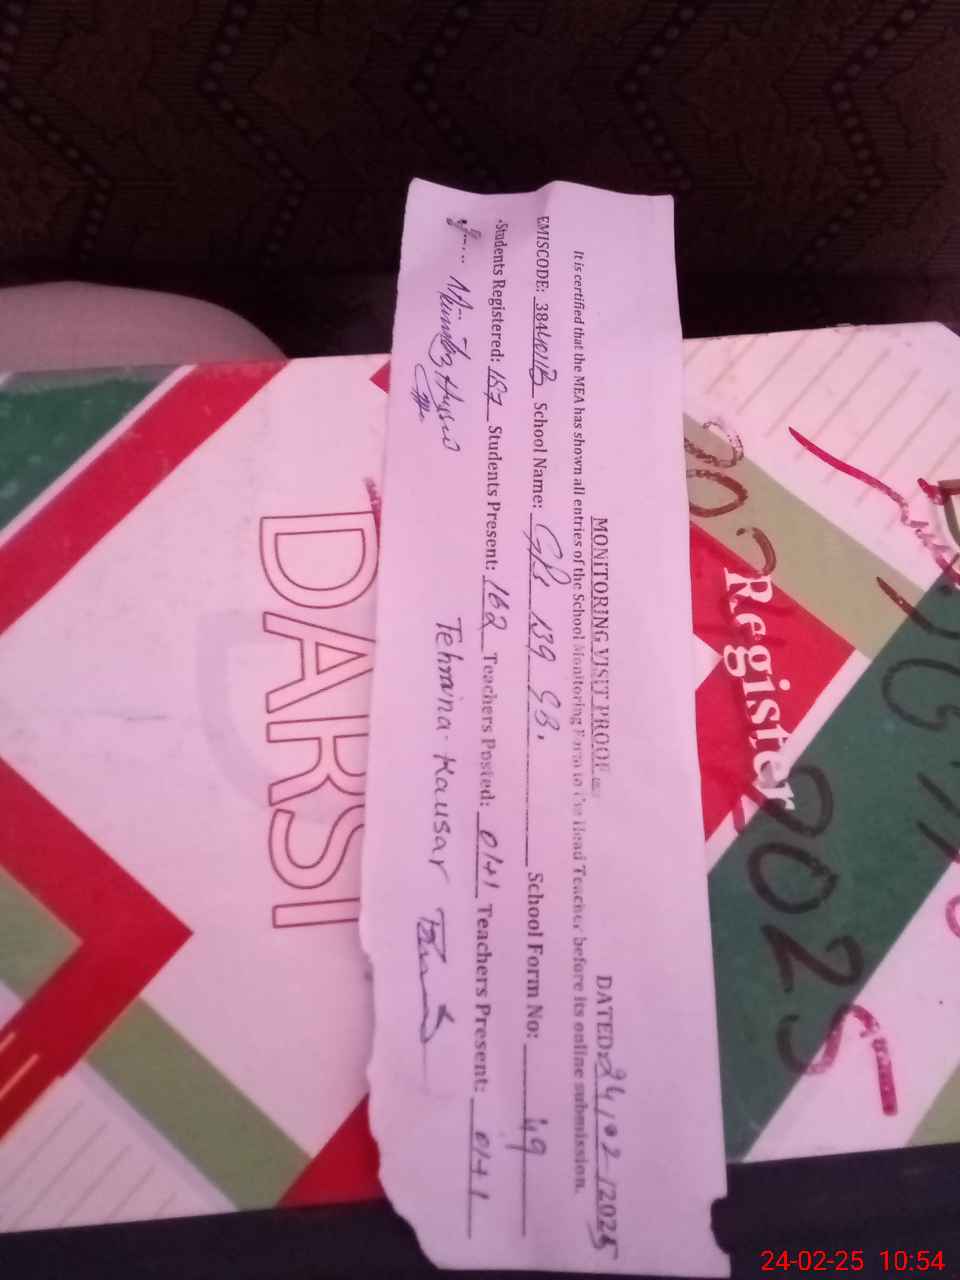 MONITORING VISIT PROOF DATED: 24/02/2025
It is certified that the MEA has shown all entries of the School Monitoring Form to the Head Teacher before its online submission.
EMISCODE: School Name: GPS 139 GB. School Form No: 49
Students Registered: 187 Students Present: 162 Teachers Posted: 04+1 Teachers Present: 04+1
Tehmina Kausar
DARSI
Register
2025
24-02-25 10:54